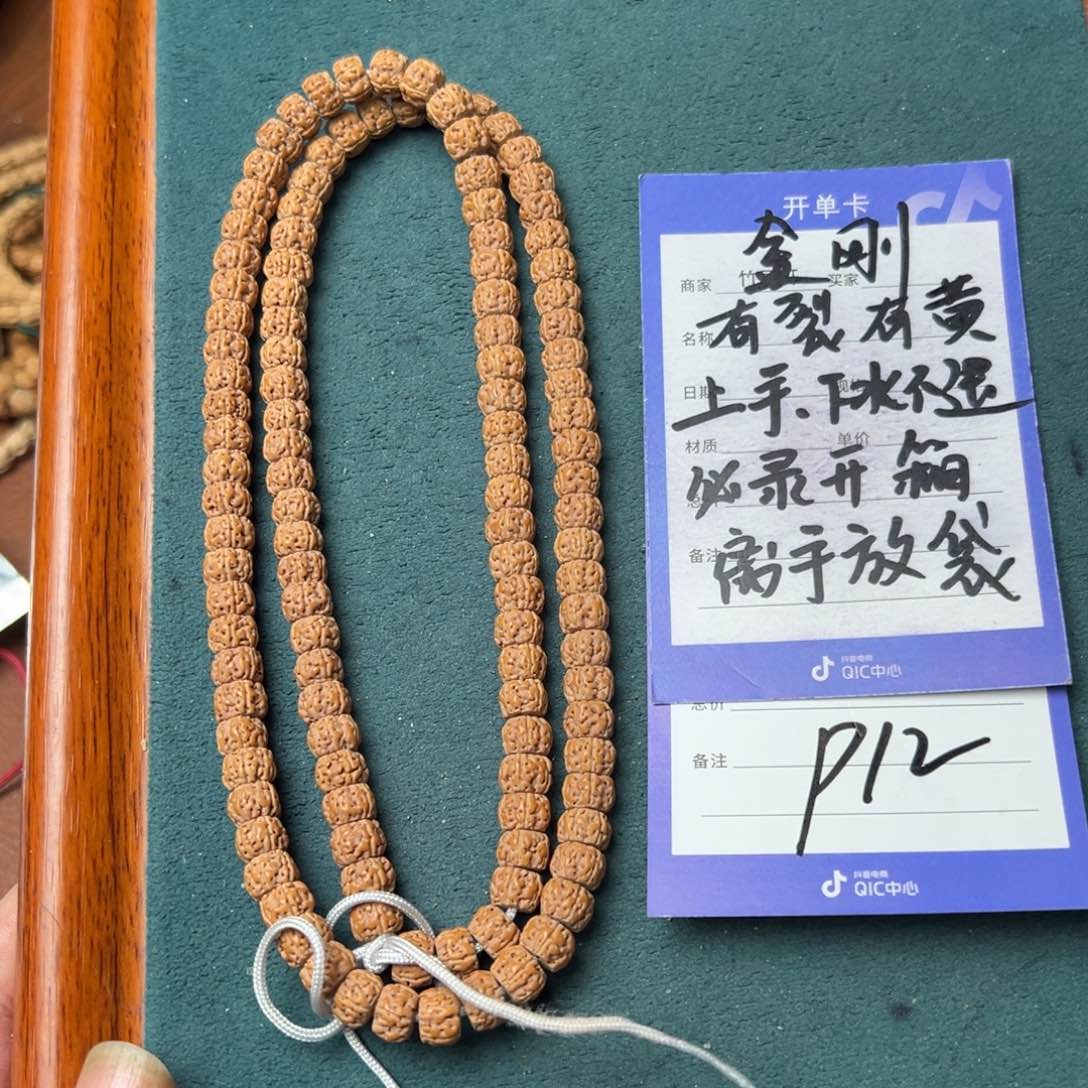 开单卡
金刚
商家 竹 买家
名称 有裂有黄
日期
上手、下水不退
材质 单价
必录开箱
备注 离手放袋
抖音电商
QIC中心
总价
备注 P12
抖音电商
QIC中心